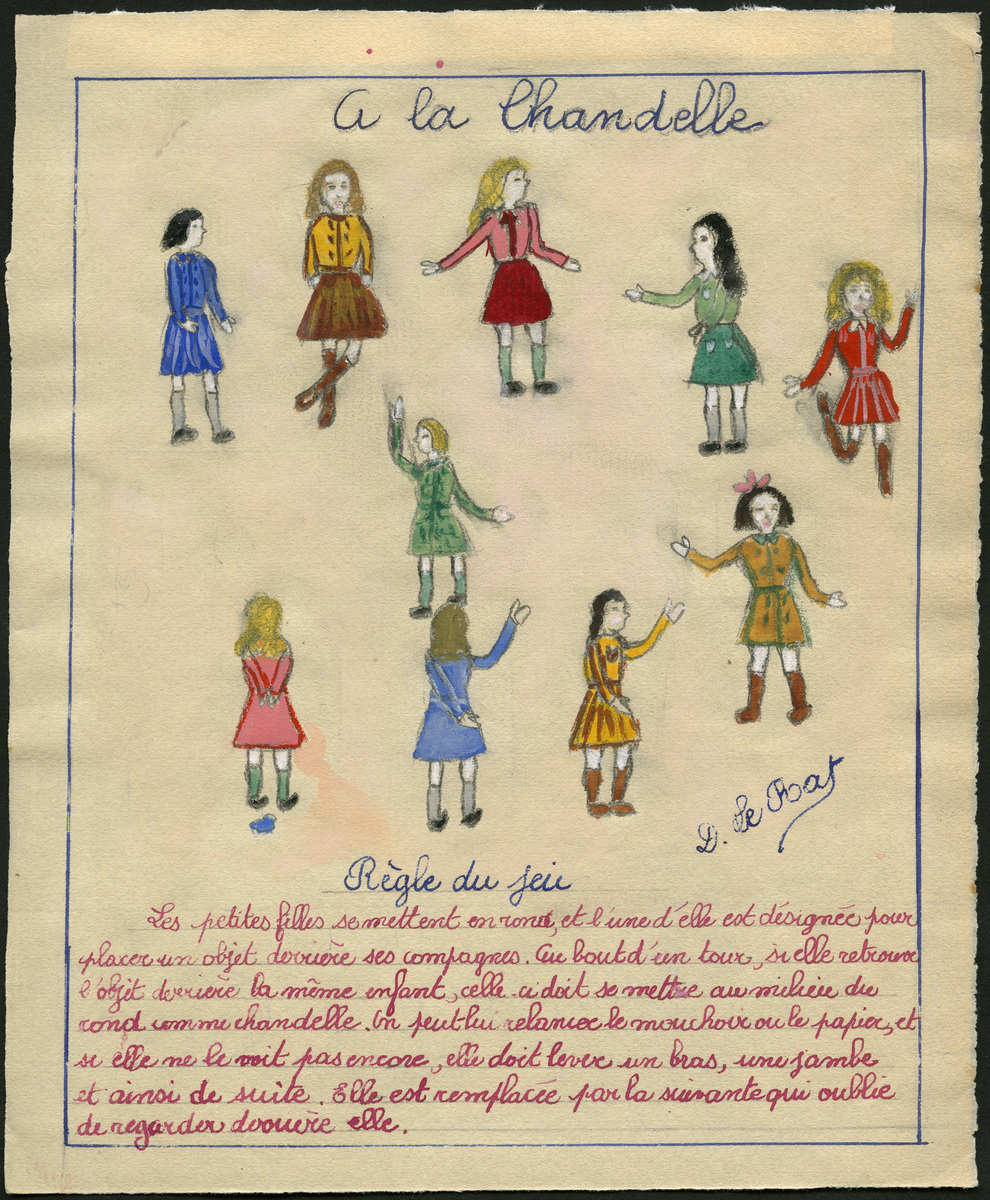 A la Chandelle
D. Le Rat
Règle du jeu
Les petites filles se mettent en rond, et l'une d'elle est désignée pour
placer un objet derrière ses compagnes. Au bout d'un tour, si elle retrouve
l'objet derrière la même enfant, celle-ci doit se mettre au milieu du
rond comme chandelle. On peut lui relancer le mouchoir ou le papier, et
si elle ne le voit pas encore, elle doit lever un bras, une jambe
et ainsi de suite. Elle est remplacée par la suivante qui oublie
de regarder derrière elle.